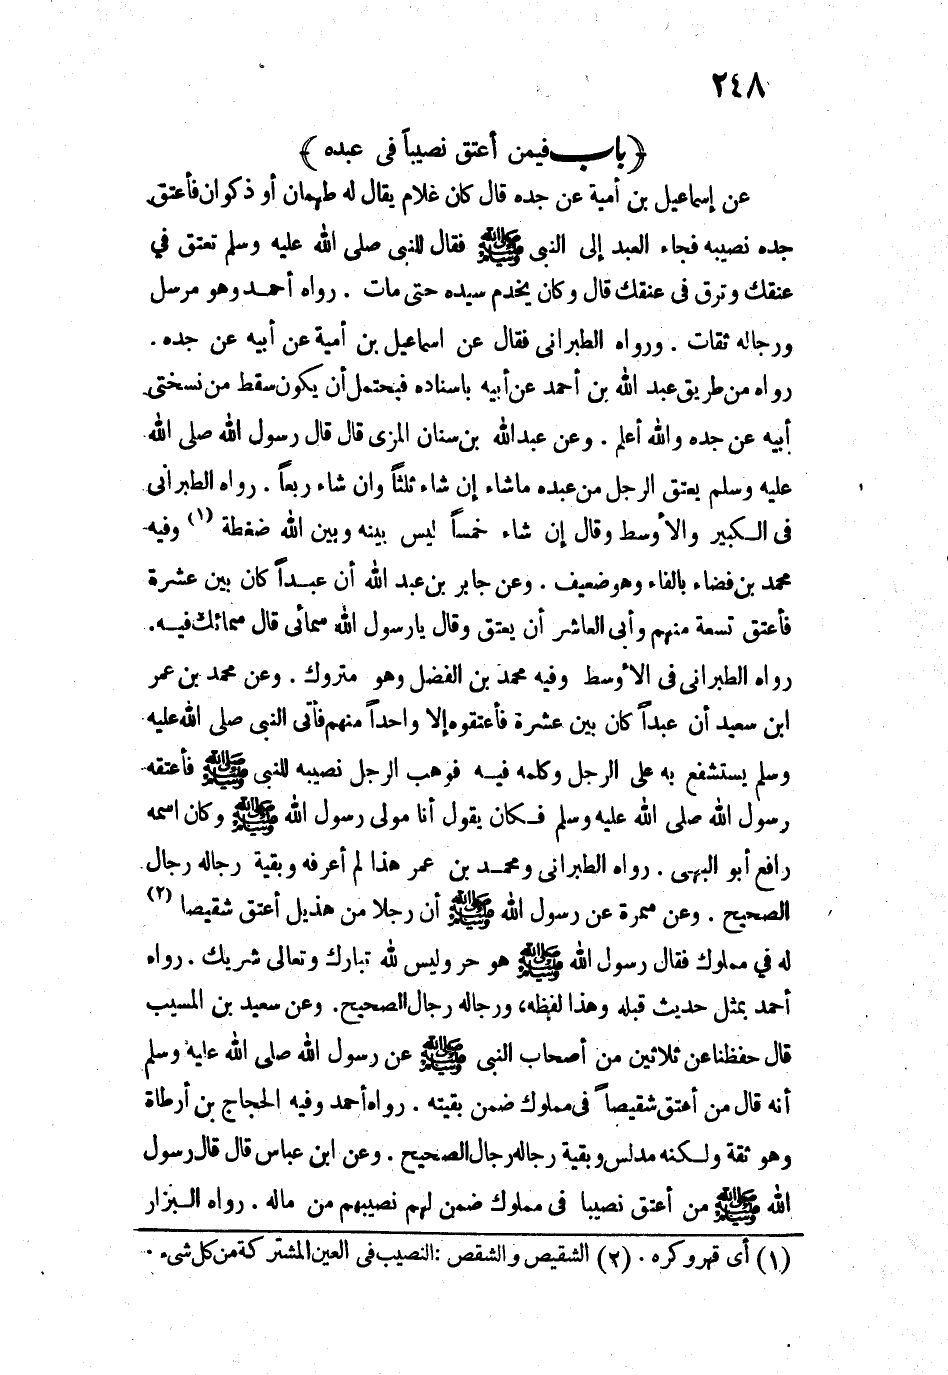 ٢٤٨
﴿ باب فيمن أعتق نصيباً فى عبده ﴾
عن إسماعيل بن أمية عن جده قال كان غلام يقال له طهمان أو ذكوان فأعتق
جده نصيبه فجاء العبد إلى النبى ﷺ فقال للنبى صلى الله عليه وسلم تعتق في
عنقك وترق فى عنقك قال وكان يخدم سيده حتى مات . رواه أحمد وهو مرسل
ورجاله ثقات . ورواه الطبرانى فقال عن اسماعيل بن أمية عن أبيه عن جده .
رواه من طريق عبد الله بن أحمد عن أبيه باسناده فيحتمل أن يكون سقط من نسختى
أبيه عن جده والله أعلم . وعن عبدالله بن سنان المزى قال قال رسول الله صلى الله
عليه وسلم يعتق الرجل من عبده ماشاء إن شاء ثلثاً وان شاء ربعاً . رواه الطبرانى
فى الكبير والأوسط وقال إن شاء خمساً ليس بينه وبين الله ضغطة (١) وفيه
محمد بن فضاء بالفاء وهو ضعيف . وعن جابر بن عبد الله أن عبداً كان بين عشرة
فأعتق تسعة منهم وأبى العاشر أن يعتق وقال يارسول الله سمائى قال سمائك فيه .
رواه الطبرانى فى الأوسط وفيه محمد بن الفضل وهو متروك . وعن محمد بن عمر
ابن سعيد أن عبداً كان بين عشرة فأعتقوه إلا واحداً منهم فأتى النبى صلى الله عليه
وسلم يستشفع به على الرجل وكلمه فيه فوهب الرجل نصيبه للنبى ﷺ فأعتقه
رسول الله صلى الله عليه وسلم فكان يقول أنا مولى رسول الله ﷺ وكان اسمه
رافع أبو البهى . رواه الطبرانى ومحمد بن عمر هذا لم أعرفه وبقية رجاله رجال
الصحيح . وعن سمرة عن رسول الله ﷺ أن رجلا من هذيل أعتق شقيصا (٢)
له في مملوك فقال رسول الله ﷺ هو حر وليس لله تبارك وتعالى شريك . رواه
أحمد بمثل حديث قبله وهذا لفظه، ورجاله رجال الصحيح. وعن سعيد بن المسيب
قال حفظنا عن ثلاثين من أصحاب النبى ﷺ عن رسول الله صلى الله عليه وسلم
أنه قال من أعتق شقيصاً فى مملوك ضمن بقيته . رواه أحمد وفيه الحجاج بن أرطاة
وهو ثقة ولكنه مدلس وبقية رجاله رجال الصحيح . وعن ابن عباس قال قال رسول
الله ﷺ من أعتق نصيبا فى مملوك ضمن لهم نصيبهم من ماله . رواه البزار
(١) أى قهر وكره . (٢) الشقيص والشقص : النصيب فى العين المشتركة من كل شىء .